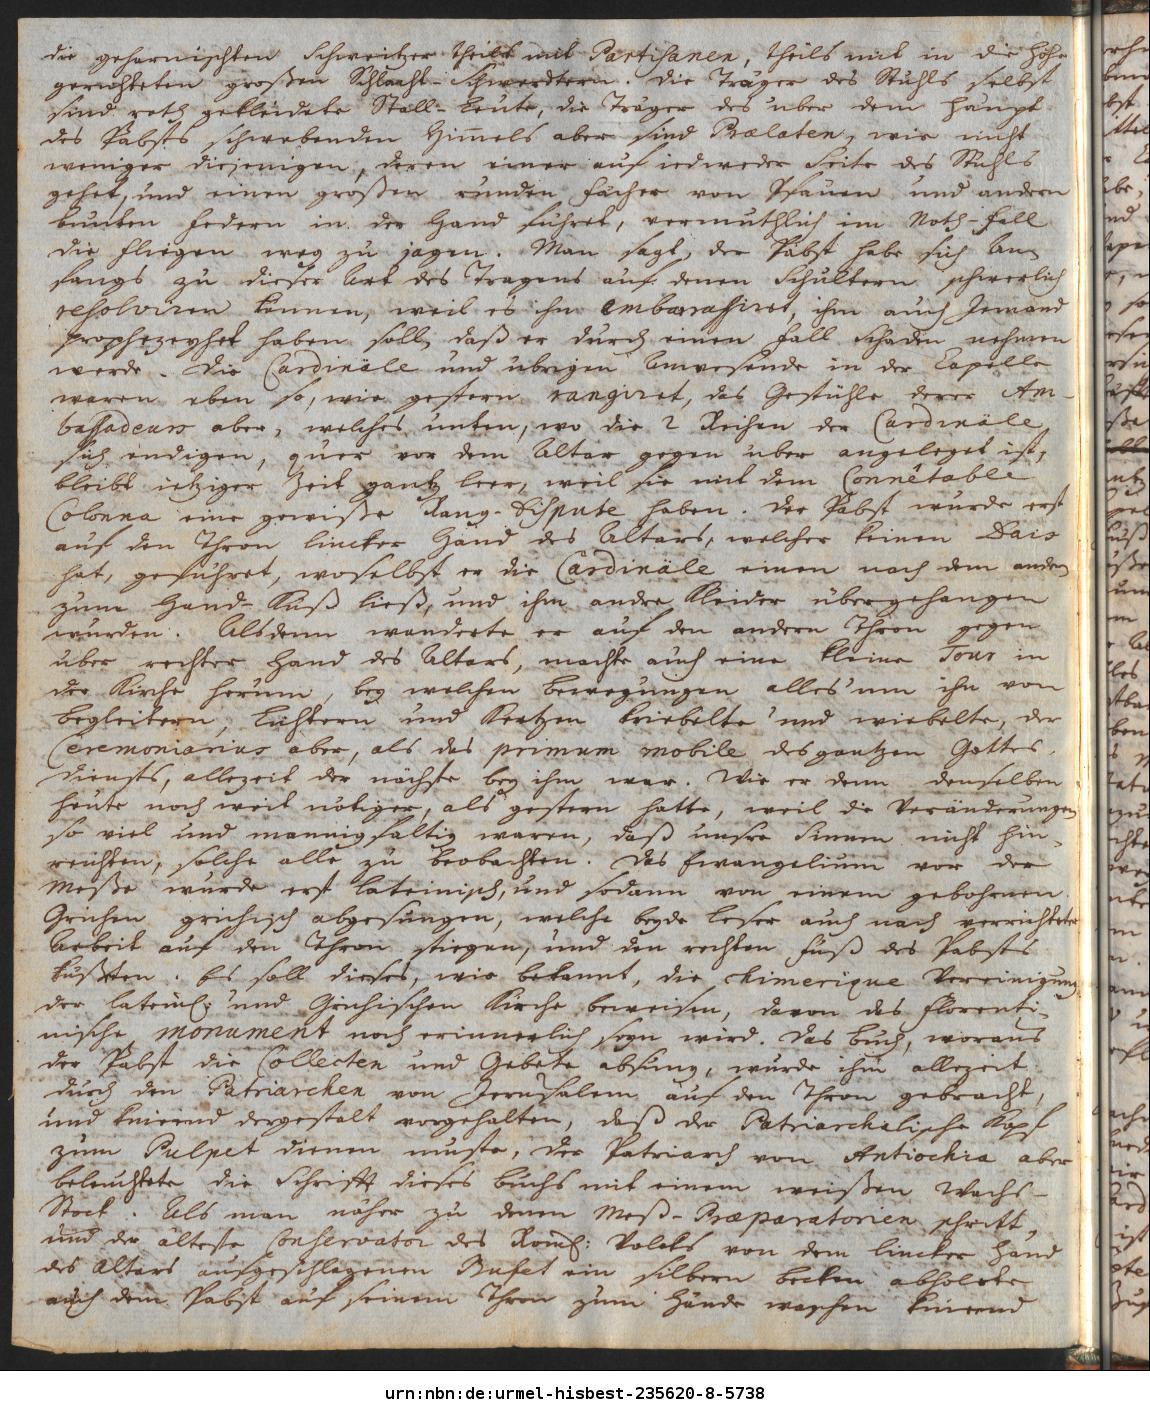 die geharnischten Schweitzer theils mit Partisanen, theils mit in die Höhe
gerichteten großen Schlacht-Schwerdtern. Die Träger des Stuhls selbst
sind roth gekleidete Stall-Leute, die Träger des uber dem Haupt
des Pabsts schwebenden Himmels aber sind Prælaten, wie nicht
weniger diejenigen, deren einer auf iedweder Seite des Stuhls
gehet, und einen großen runden Fächer von Pfauen und andern
bunten Federn in der Hand führet, vermuthlich im Noth-Fall
die Fliegen weg zu jagen. Man sagt, der Pabst habe sich An-
fangs zu dieser Art des Tragens auf denen Schultern schwerlich
resolviren können, weil es ihn embarassiret, ihm auch Jemand
prophezeyhet haben soll, daß er durch einen Fall Schaden nehmen
werde. Die Cardinäle und ubrigen Anwesende in der Capelle
waren eben so, wie gestern rangiret, das Gestühle derer Am-
bassadeurs aber, welches unten, wo die 2 Reihen der Cardinäle,
sich endigen, quer vor dem Altar gegen uber angeleget ist,
bleibt ietziger Zeit gantz leer, weil sie mit dem Connêtable
Colonna eine gewiße Rang-Dispute haben. Der Pabst wurde erst
auf den Thron lincker Hand des Altars, welcher keinen Dais
hat, geführet, woselbst er die Cardinäle einen nach dem andern
zum Hand-Kuß ließ, und ihm andre Kleider übergehangen
wurden. Alsdenn wanderte er auf den andern Thron gegen
uber rechter Hand des Altars, machte auch eine kleine Tour in
der Kirche herum, bey welchen Bewegungen alles um ihn von
Begleitern, Lichtern und Kertzen kriebelte und wiebelte, der
Ceremoniarius aber, als das primum mobile des gantzen Gottes-
diensts, allezeit der nächste bey ihm war. Wie er denn denselben
heute noch weit nötiger, als gestern hatte, weil die Veränderungen
so viel und mannigfaltig waren, daß unsre Sinnen nicht hin-
reichten, solche alle zu beobachten. Das Evangelium vor der
Meße wurde erst lateinisch, und sodann von einem gebohrnen
Grichen grichisch abgesungen, welche beyde Leser auch nach verrichteter
Arbeit auf den Thron stiegen, und den rechten Fuß des Pabsts
küßten. Es soll dieses, wie bekannt, die chimerique Vereinigung
der latein: und Grichischen Kirche beweisen, davon das Florenti-
nische monument noch erinnerlich seyn wird. Das Buch, woraus
der Pabst die Collecten und Gebete absung, wurde ihm allezeit
durch den Patriarchen von Jerusalem auf den Thron gebracht,
und knierend dergestalt vorgehalten, daß der Patriarchalische Kopf
zum Pulpet dienen muste, der Patriarch von Antiochia aber
beleuchtete die Schrifft dieses Buchs mit einem weißen Wachs-
Stock. Als man näher zu denen Meß-Præparatorien schritt,
und der älteste Conservator des Röm: Volcks von dem lincker Hand
des Altars aufgeschlagenen Bufet ein silbern Becken abholete
auch dem Pabst auf seinem Thron zum Hände waschen knierend
urn:nbn:de:urmel-hisbest-235620-8-5738